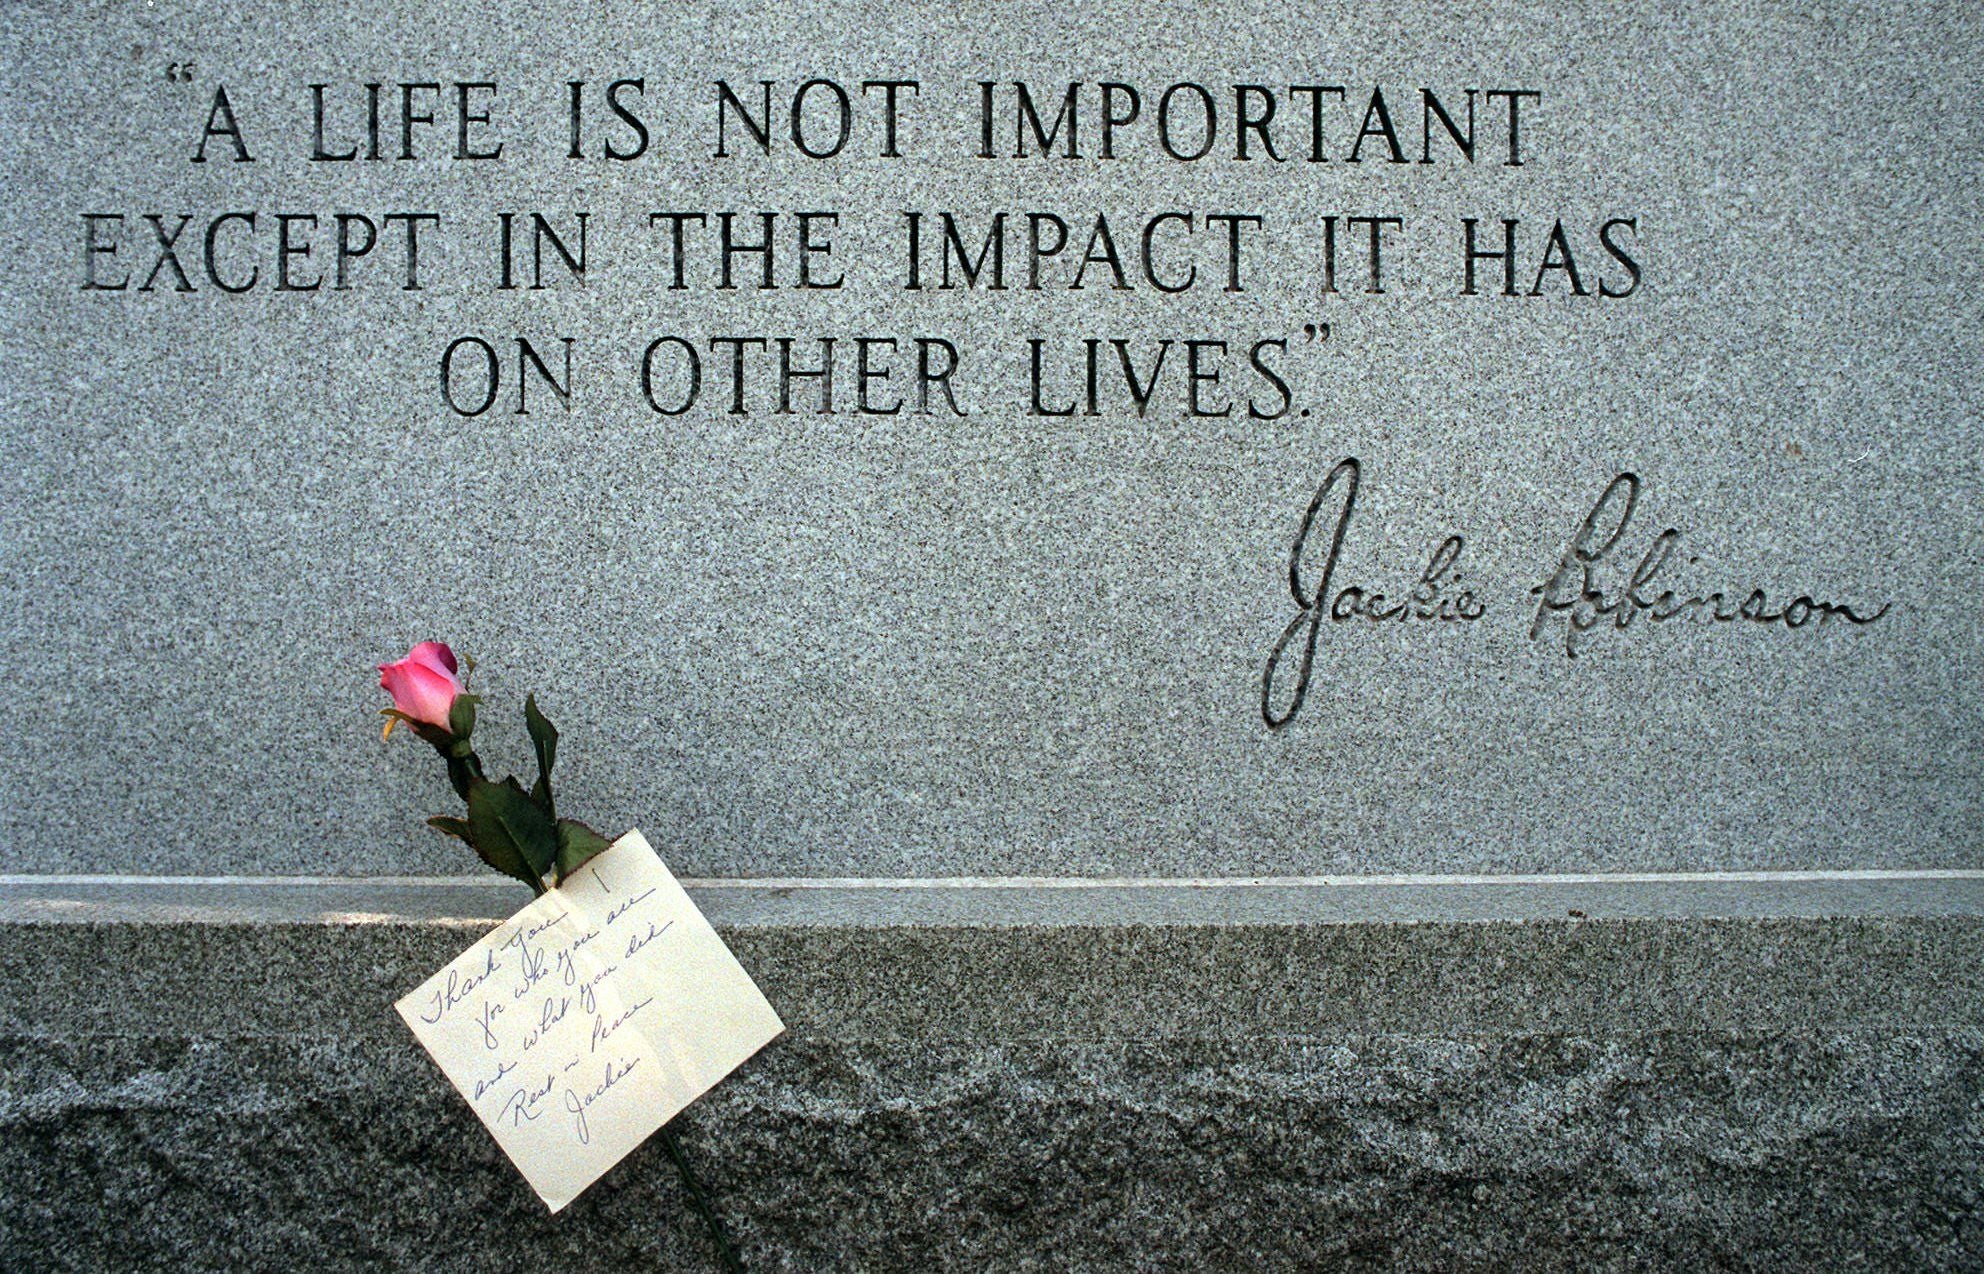 “A LIFE IS NOT IMPORTANT
EXCEPT IN THE IMPACT IT HAS
ON OTHER LIVES.”
Jackie Robinson
Thank you
for who you are
and what you did
Rest in Peace
Jackie